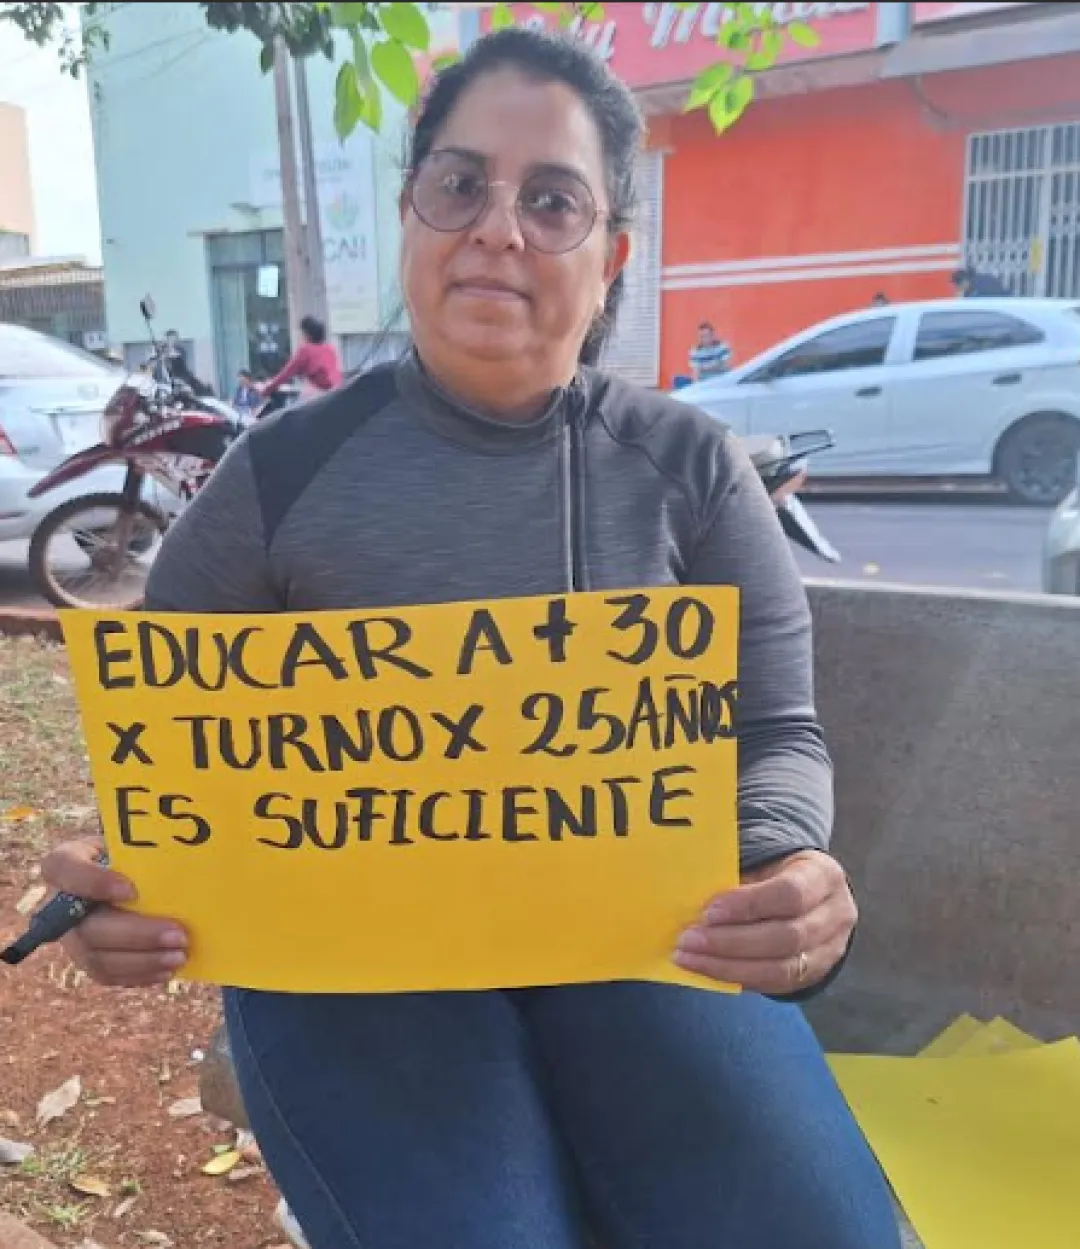 EDUCAR A + 30
x TURNO x 25 AÑOS
ES SUFICIENTE